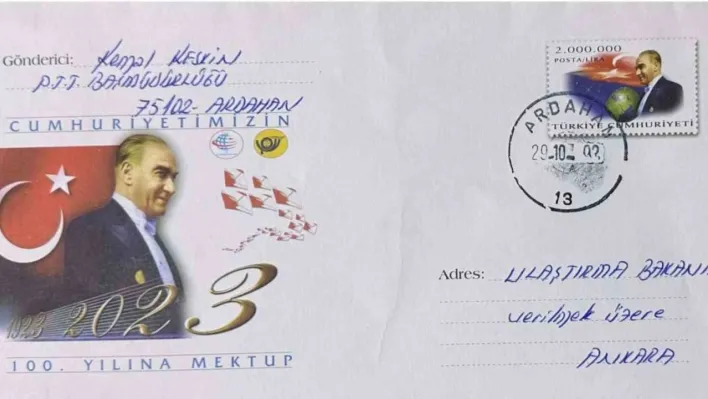 Gönderici: Kemal KESKİN
P.T.T. BAŞMÜDÜRLÜĞÜ
75102- ARDAHAN
CUMHURİYETİMİZİN
1923 2023
100. YILINA MEKTUP
2.000.000
POSTA/LİRA
TÜRKİYE CUMHURİYETİ
ARDAHAN
29-10
13
Adres: ULAŞTIRMA BAKANI
verilmek üzere
ANKARA